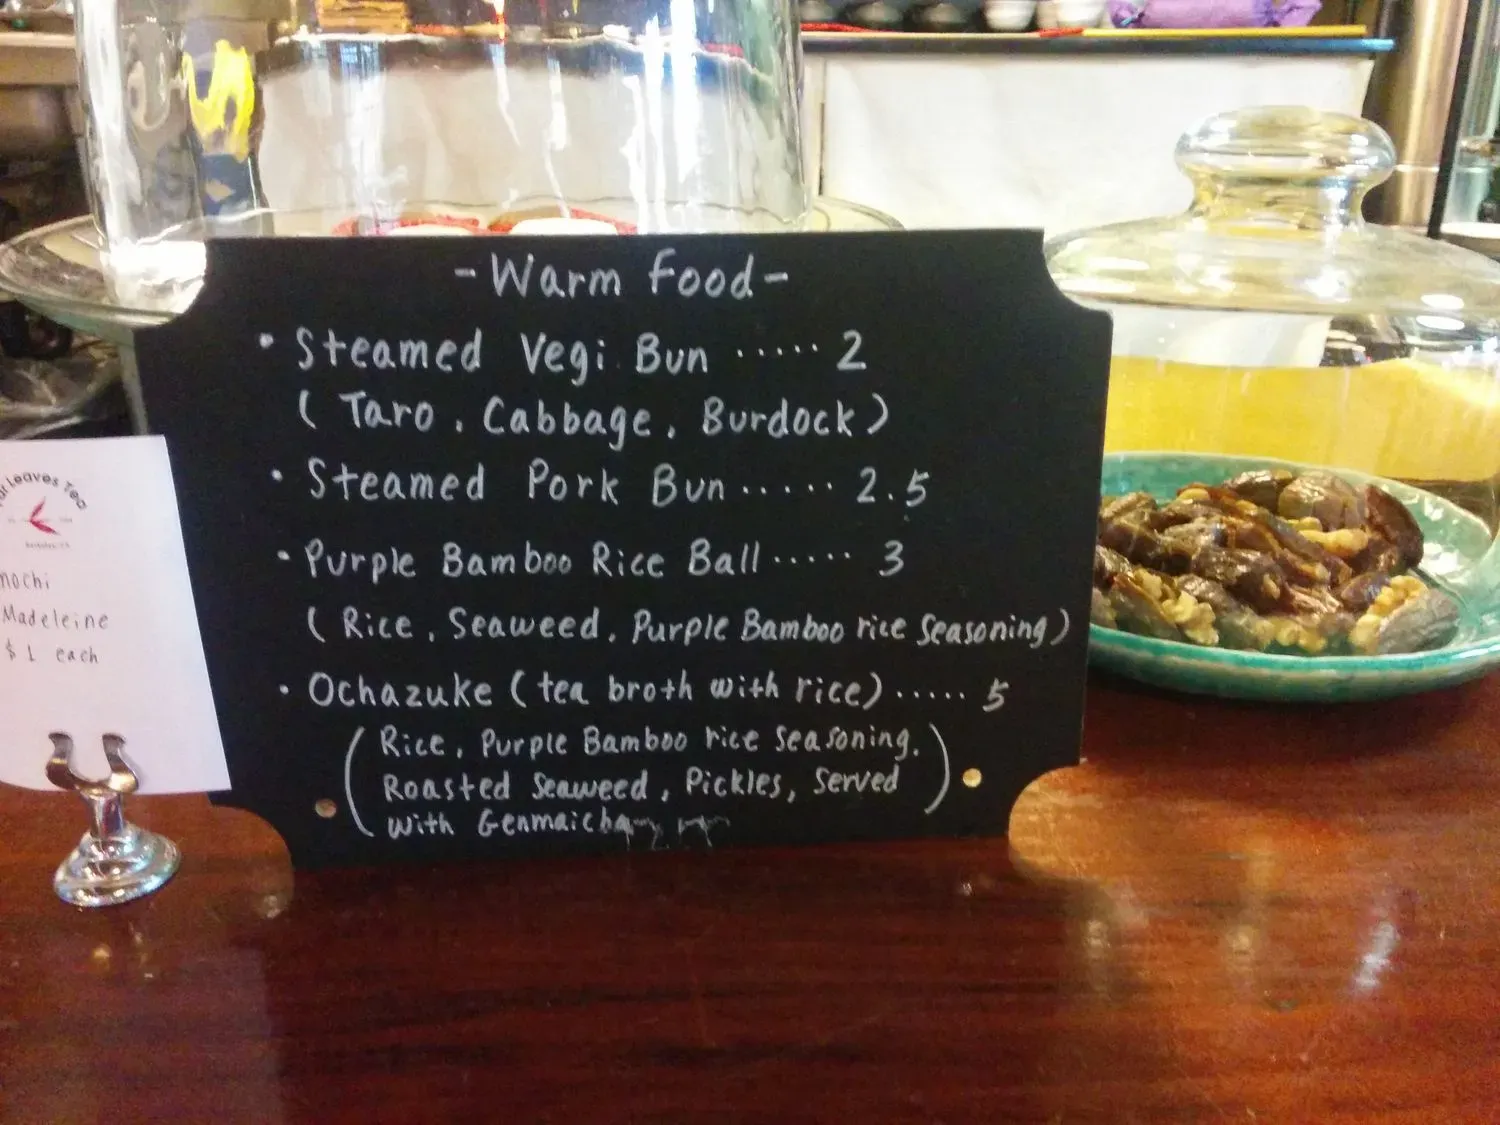 - Warm Food -
• Steamed Vegi Bun ..... 2
( Taro, Cabbage, Burdock )
• Steamed Pork Bun ..... 2.5
• Purple Bamboo Rice Ball ..... 3
( Rice, Seaweed, Purple Bamboo rice Seasoning )
• Ochazuke ( tea broth with rice ) ..... 5
( Rice, Purple Bamboo rice seasoning,
Roasted Seaweed, Pickles, Served
with Genmaicha )
Leaves Tea
mochi
Madeleine
$1 each